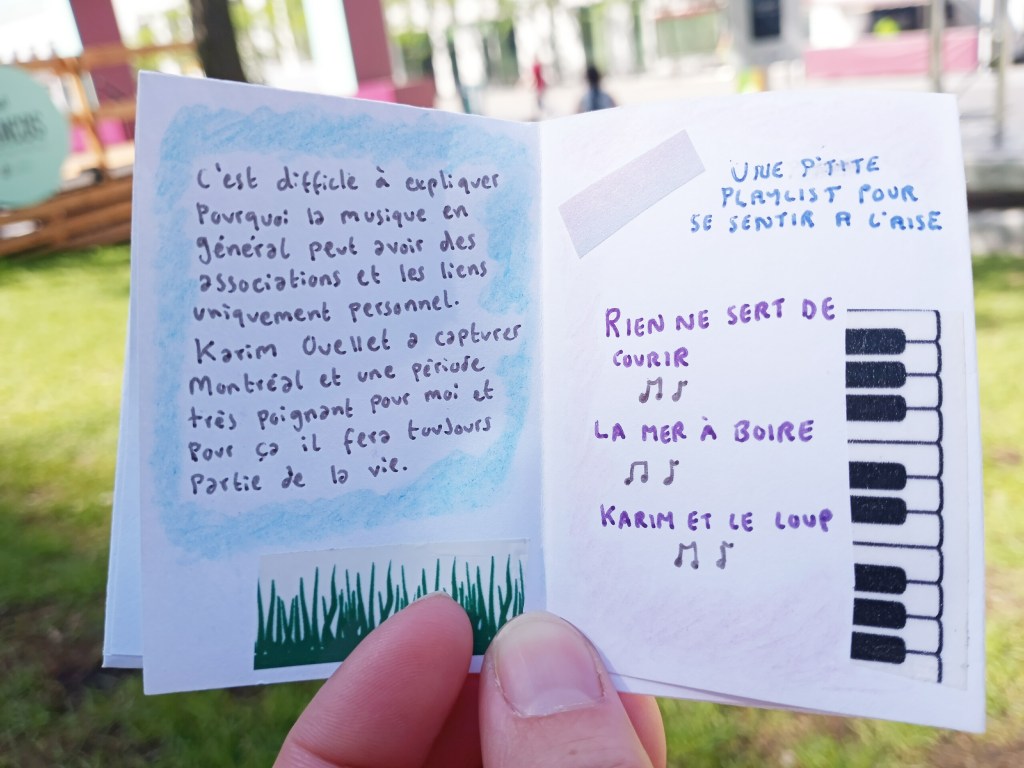 C'est difficle à expliquer
Pourquoi la musique en
général peut avoir des
associations et les liens
uniquement personnel.
Karim Ouellet a captures
Montréal et une période
très poignant pour moi et
Pour ça il fera toujours
Partie de la vie.
UNE P'TITE
PLAYLIST POUR
SE SENTIR A L'AISE
RIEN NE SERT DE
COURIR
LA MER À BOIRE
KARIM ET LE LOUP